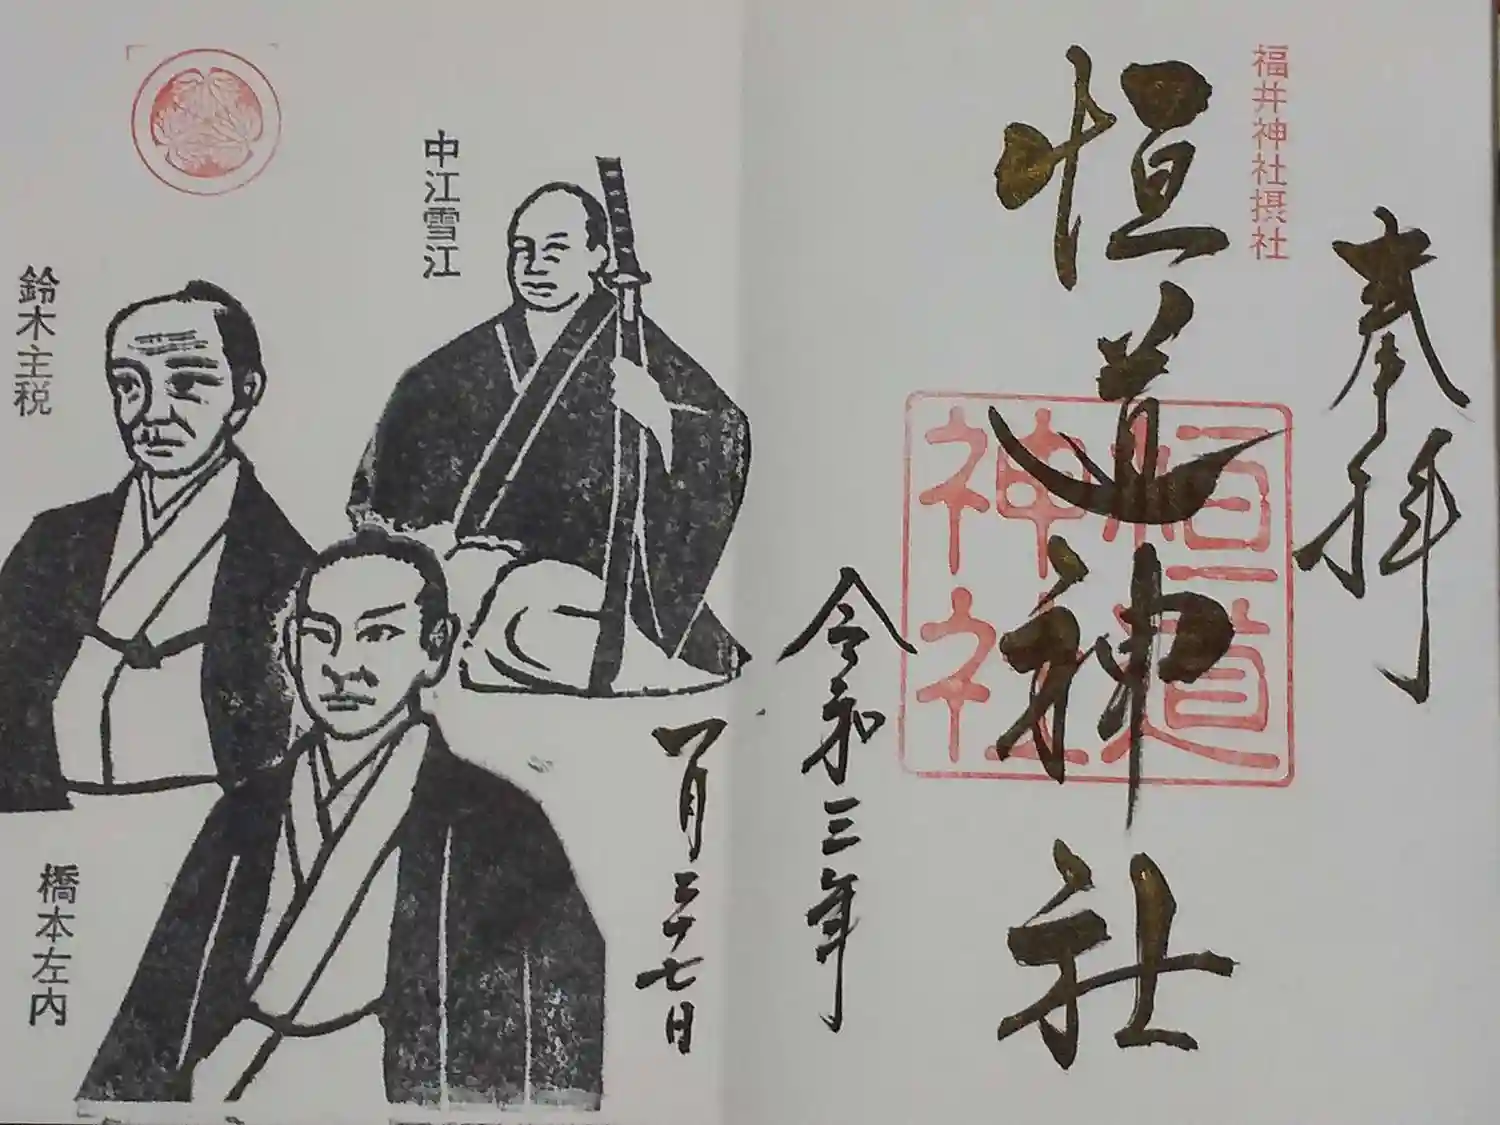 奉拝
福井神社摂社
恒道神社
恒道
神社
令和三年
一月二十七日
中江雪江
鈴木主税
橋本左内